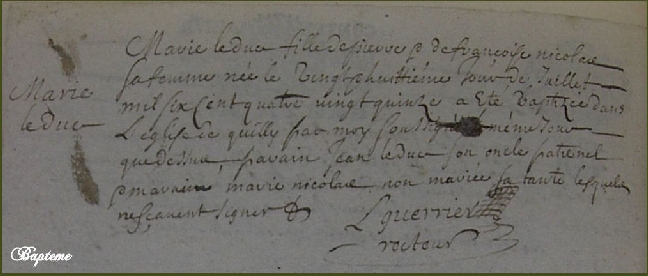 Marie le duc fille de pierre & de françoise nicolas
sa femme née le vingt huittiéme jour de Juillet
mil six cent quatre vingt quinze a eté Baptizée dans
Marie
le duc
L'eglise de quilly par moy soussigné même jour
que dessus, parain Jean le duc son oncle paternel
& maraine marie nicolas non mariée sa tante lesquels
ne sçavent signer
L guerrier
recteur
Bapteme